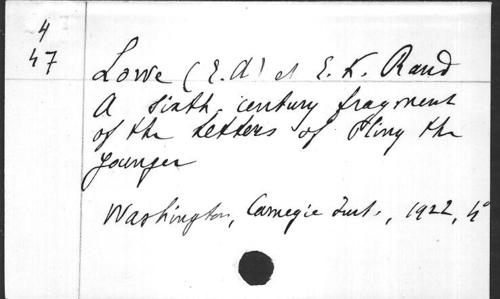 4
47
Lowe (E.A) et E. K. Rand
A sixth century fragment
of the Letters of Pliny the
younger
Washington, Carnegie Inst., 1922, 4°